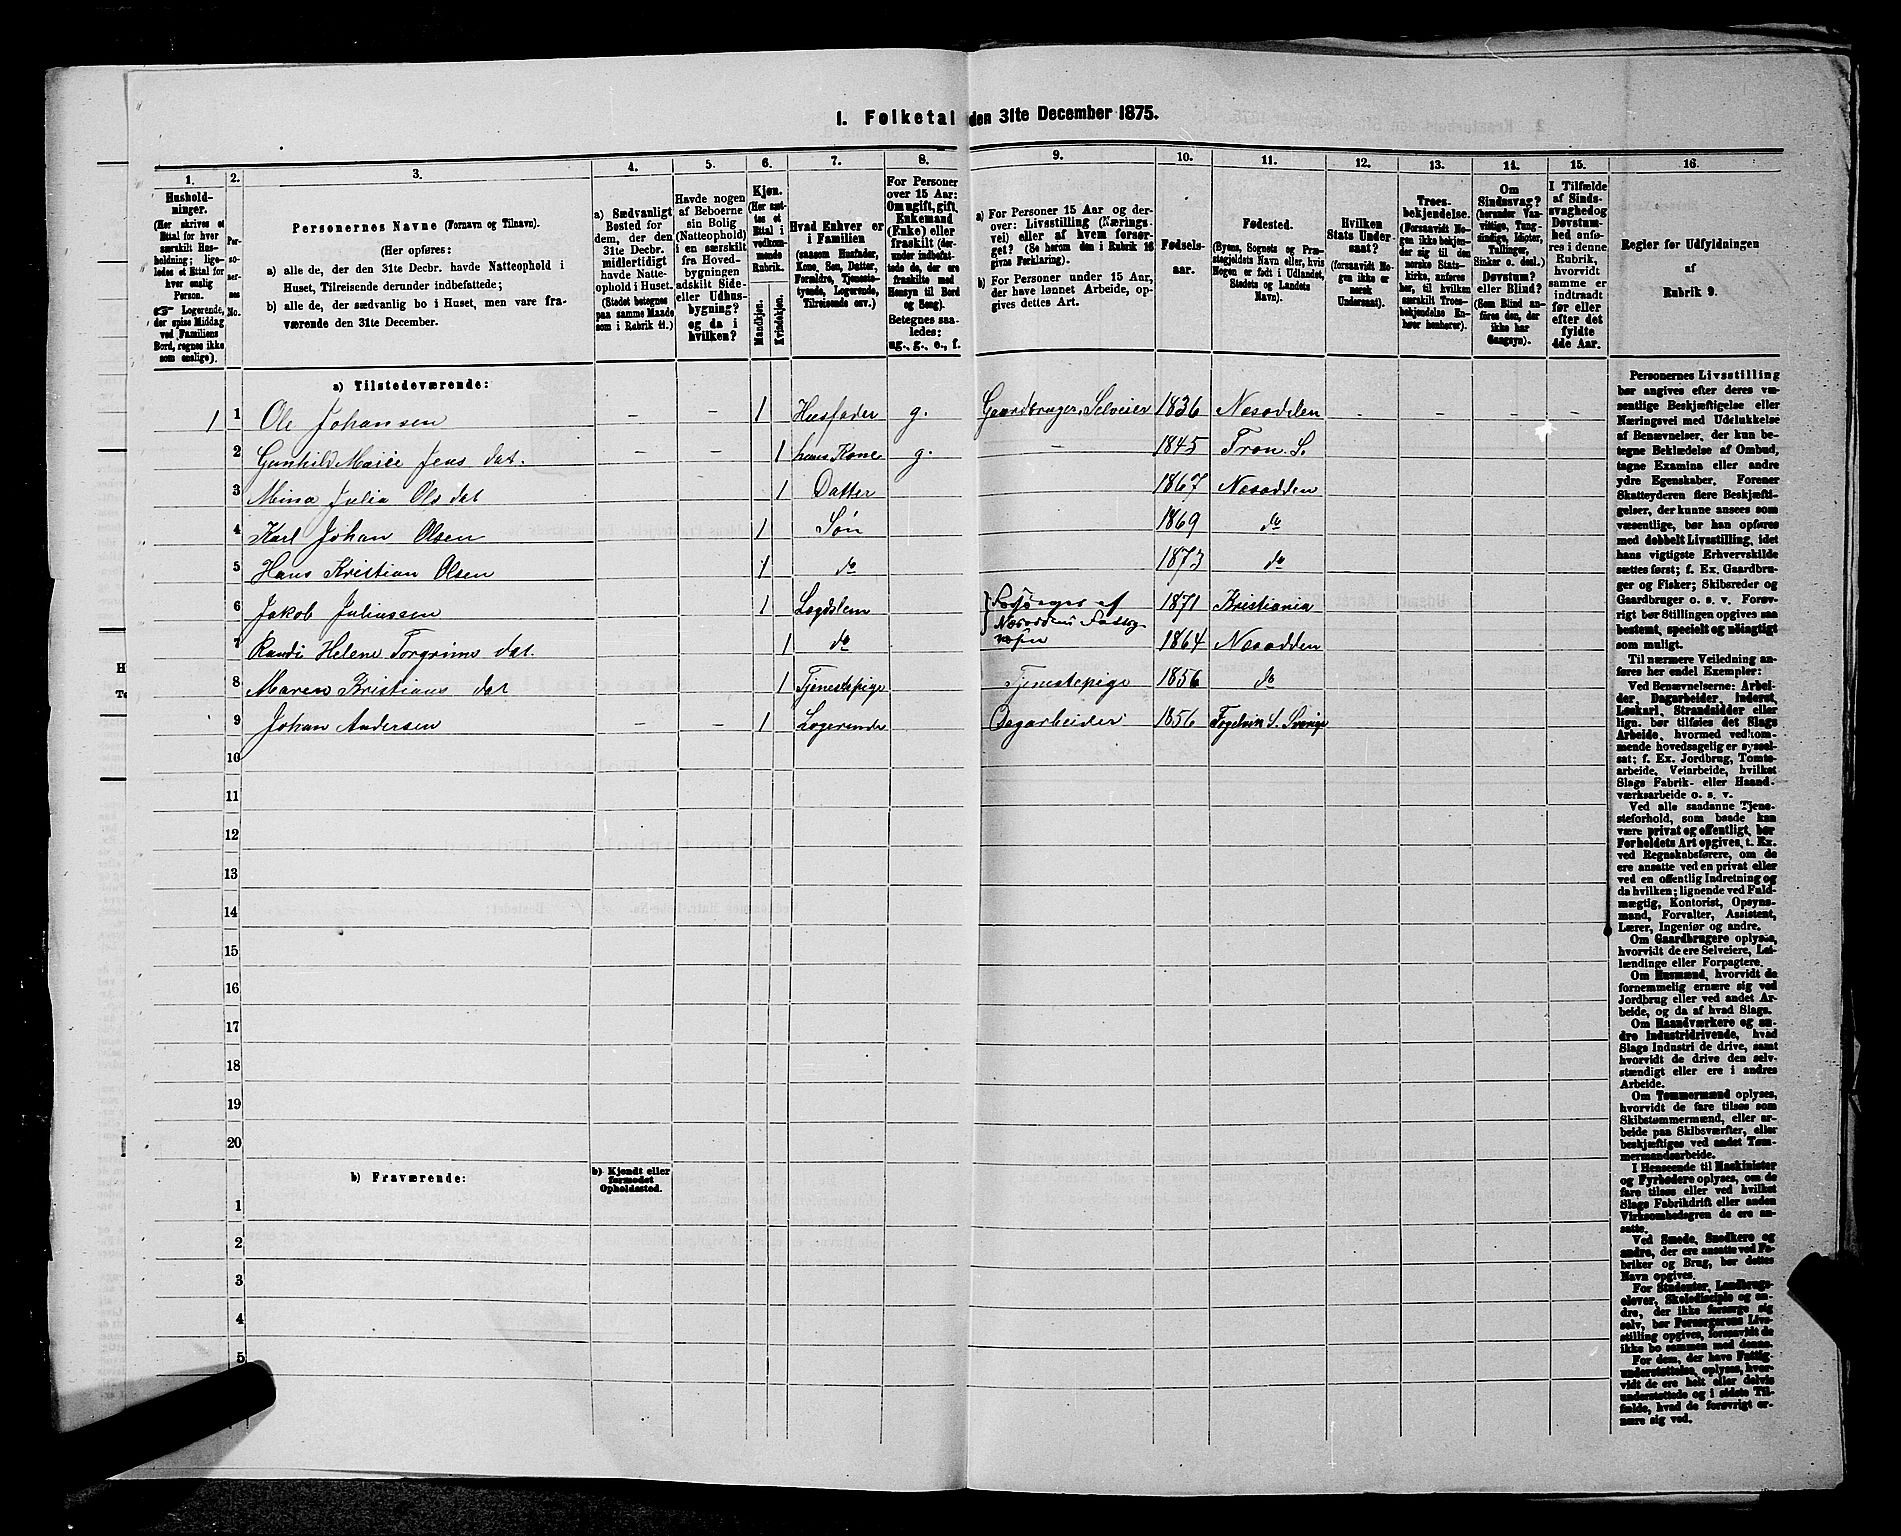 1. Folketal den 31te December 1875.
1. 2. 3. 4. 5. 6. 7. 8. 9. 10. 11. 12. 13. 14. 15. 16.
Hushold-
ninger.
(Her skrives et
Ettal for hver
særskilt Hus-
holdning; lige-
ledes et Ettal for
hver enslig
Person.
☞ Logerende,
der spise Middag
ved Familiens
Bord, regnes ikke
som enslige).
Per-
so-
ner-
nes
No.
Personernes Navne (Fornavn og Tilnavn).
(Her opføres:
a) alle de, der den 31te Decbr. havde Natteophold i
Huset, Tilreisende derunder indbefattede;
b) alle de, der sædvanlig bo i Huset, men vare fra-
værende den 31te December.
a) Sædvanligt
Bosted for
dem, der den
31te Decbr.
midlertidigt
havde Natte-
ophold i Huset.
(Stedet betegnes
paa samme Maade
som i Rubrik 11.)
Havde nogen
af Beboerne
sin Bolig
(Natteophold)
i en særskilt
fra Hoved-
bygningen
adskilt Side-
eller Udhus-
bygning?
og da i
hvilken?
Kjøn.
(Her sæt-
tes et
Ettal i
vedkom-
mende
Rubrik.
Mandkjøn.
Kvindekjøn.
Hvad Enhver er
i Familien
(saasom Husfader,
Kone, Søn, Datter,
Forældre, Tjeneste-
tyende, Logerende,
Tilreisende osv.)
For Personer
over 15 Aar:
Om ugift, gift,
Enkemand
(Enke) eller
fraskilt (der-
under indbefat-
tede de, der ere
fraskilte med
Hensyn til Bord
og Seng).
Betegnes saa-
ledes:
ug., g., e., f.
a) For Personer 15 Aar og der-
over: Livsstilling (Nærings-
vei) eller af hvem forsør-
get? (Se herom den i Rubrik 16
givne Forklaring).
b) For Personer under 15 Aar,
der have lønnet Arbeide, op-
gives dettes Art.
Fødsels-
aar.
Fødested.
(Byens, Sognets og Præ-
stegjeldets Navn eller, hvis
Nogen er født i Udlandet,
Stedets og Landets
Navn).
Hvilken
Stats Under-
saat?
(forsaavidt No-
gen ikke er
norsk
Undersaat).
Troes-
bekjendelse.
(Forsaavidt No-
gen ikke bekjen-
der sig til den
norske Stats-
kirke, anføres
her, til hvilken
særskilt Troes-
bekjendelse En-
hver henhører).
Om
Sindssvag?
(herunder Van-
vittige, Tung-
sindige, Idioter,
Tullinger,
Sinker o. desl.)
Døvstum?
eller Blind?
(Som Blind an-
føres den, der
ikke har
Gangsyn).
I Tilfælde
af Sinds-
svaghed og
Døvstum-
hed anfø-
res i denne
Rubrik,
hvorvidt
samme er
indtraadt
før eller
efter det
fyldte
4de Aar.
Regler for Udfyldningen
af
Rubrik 9.
a) Tilstedeværende:
1 1 Ole Johansen – – 1 Husfader g. Gaardbruger, Selveier 1836 Nesodden - - - -
2 Gunhild Marie Jens dat. – – 1 hans Kone g. – 1845 Tron. S.
3 Mina Julia Ols dat 1 Datter 1867 Nesodden
4 Karl Johan Olsen 1 Søn 1869 do
5 Hans Kristian Olsen 1 do 1873 do
6 Jakob Juliussen 1 Lægdslem Forsørges af 1871 Kristiania
Næsoddens Fattig-
væsen
7 Randi Helene Torgrims dat. 1 do 1864 Nesodden
8 Maren Kristians dat 1 Tjenestepige Tjenestepige 1856 do
9 Johan Andersen – – 1 Logerende Dagarbeider 1856 S. Sverige
10
11
12
13
14
15
16
17
18
19
20
b) Fraværende:
b) Kjendt eller
formodet
Opholdssted.
1
2
3
4
5
Personernes Livsstilling
bør angives efter deres væ-
sentlige Beskjæftigelse eller
Næringsvei med Udelukkelse
af Benævnelser, der kun be-
tegne Beklædelse af Ombud,
tagne Examina eller andre
ydre Egenskaber. Forener
Skatteyderen flere Beskjæfti-
gelser, der kunne ansees som
væsentlige, bør han opføres
med dobbelt Livsstilling, idet
hans vigtigste Erhvervskilde
sættes først; f. Ex. Gaardbru-
ger og Fisker; Skibsreder og
Gaardbruger o. s. v. Forøv-
rigt bør Stillingen opgives saa
bestemt, specielt og nøiagtigt
som muligt.
Til nærmere Veiledning an-
føres her endel Exempler:
Ved Benævnelserne: Arbei-
der, Dagarbeider, Inderst,
Løskarl, Strandsidder eller
lign. bør tilføies det Slags
Arbeide, hvormed vedkom-
mende hovedsagelig er syssel-
sat; f. Ex. Jordbrug, Tomte-
arbeide, Veiarbeide, hvilket
Slags Fabrik- eller Haand-
værksarbeide o. s. v.
Ved alle saadanne Tjene-
steforhold, som baade kan
være privat og offentligt, bør
Forholdets Art opgives, f. Ex.
ved Regnskabsførere, om de
ere ansatte ved en privat eller
ved en offentlig Indretning og
da hvilken; lignende ved Fuld-
mægtig, Kontorist, Opsyns-
mand, Forvalter, Assistent,
Lærer, Ingeniør og andre.
Om Gaardbrugere oplyses,
hvorvidt de ere Selveiere, Lei-
lændinge eller Forpagtere.
Om Husmænd, hvorvidt de
fornemmelig ernære sig ved
Jordbrug eller ved andet Ar-
beide, og da af hvad Slags.
Om Haandværkere og an-
dre Industridrivende, hvad
Slags Industri de drive, samt
hvorvidt de drive den selv-
stændigt eller ere i andres
Arbeide.
Om Tømmermænd oplyses,
hvorvidt de fare tilsøs som
Skibstømmermænd, eller ar-
beide paa Skibsværfter, eller
beskjæftiges ved andet Tøm-
mermandsarbeide.
I Henseende til Maskinister
og Fyrbødere oplyses, om de
fare tilsøs eller ved hvilket
Slags Fabrikdrift eller anden
Virksomhedsgren de ere an-
satte.
Ved Smede, Snedkere og
andre, der ere ansatte ved Fa-
briker og Brug, bør dettes
Navn opgives.
For Studenter, Landbrugs-
elever, Skoledisciple og an-
dre, der ikke forsørge sig
selv, bør Forsørgerens Livs-
stilling opgives, forsaavidt de
ikke bo sammen med denne.
For dem, der have Fattig-
understøttelse, oplyses, hvor-
vidt de ere helt eller delvis
understøttede og i sidste Til-
fælde, hvad de forøvrigt er-
nære sig ved.